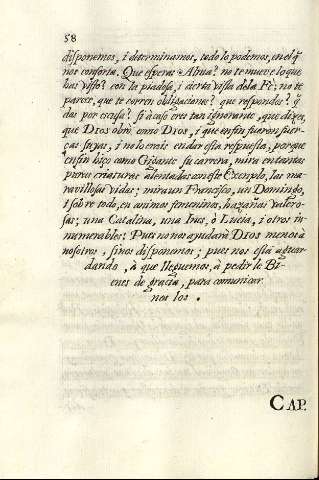 58
disponemos, i determinamos, todo lo podemos, en el q̃
nos conforta. Que esperas Alma? no te mueve lo que
has visto? con la piadosa, i cierta vista de la Fè; no te
parece, que te corren obligaciones? que respondes? q̃
das por escusa? si à caso eres tan ignorante, que dizes,
que DIOS obrò como DIOS, i que en fin fueron fuer-
ças suyas, i no hemos en dar esta respuesta, porque
en fin hizo como Gigante su carrera, mira en tantas
puras criaturas alentadas en este Exemplo, las ma-
ravillosas vidas; mira un Francisco, un Domingo,
i sobre todo, en animos femeninos, hazañas valero-
sas; una Catalina, una Ines, ò Lucia, i otros in-
numerables: Pues no nos ayudarà DIOS menos à
nosotros, si nos disponemos; pues nos està aguar
dando, à que lleguemos, à pedirle Bi-
enes de gracia, para comunicar
nos los.
CAP.